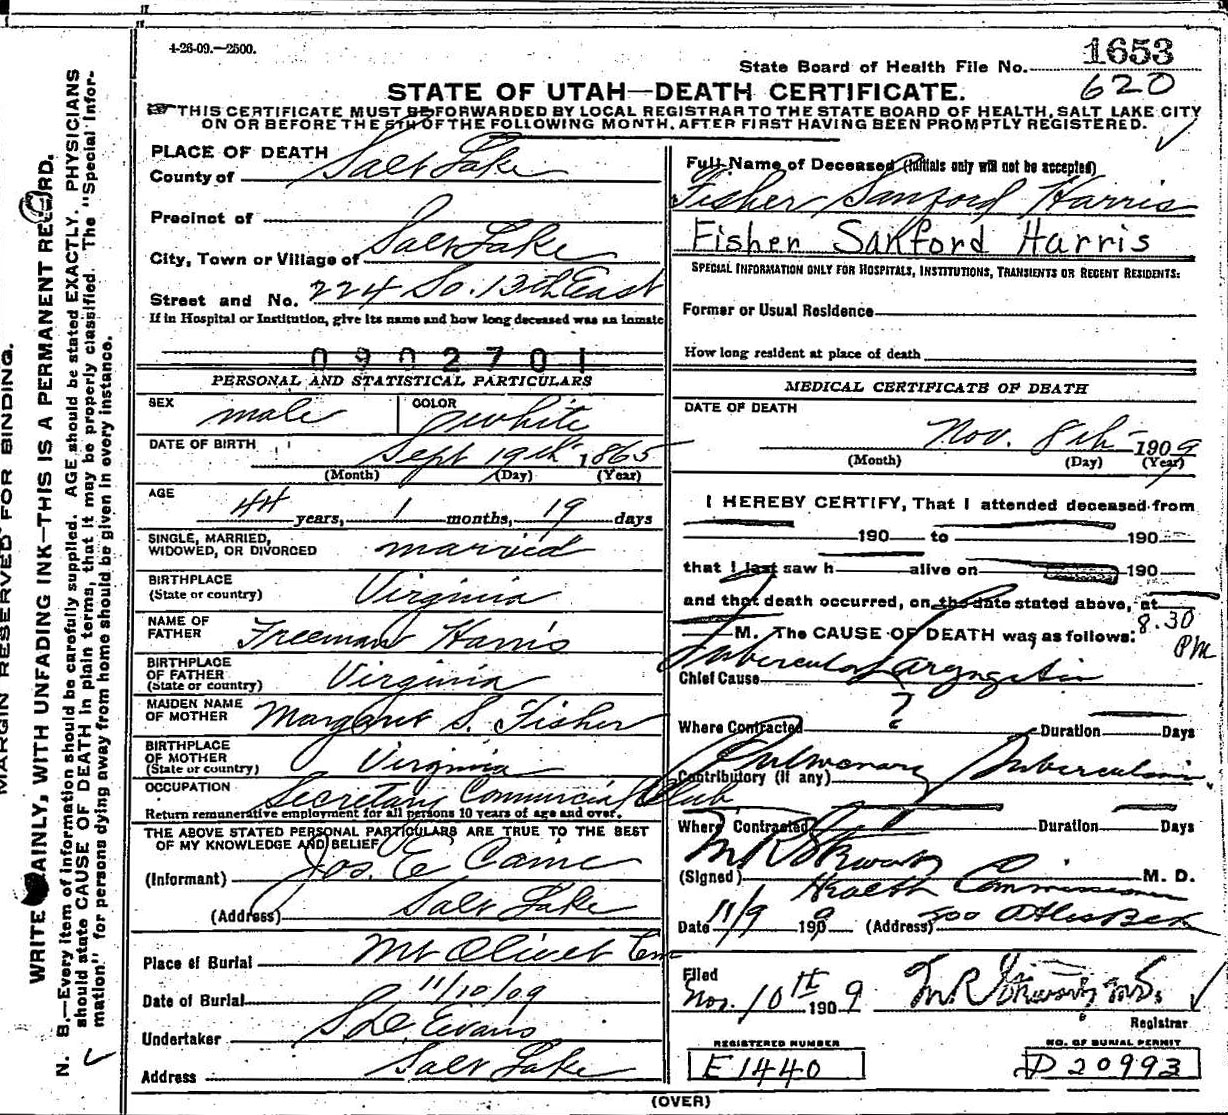 4-26-09.—2500.
State Board of Health File No. 1653
620
STATE OF UTAH—DEATH CERTIFICATE.
THIS CERTIFICATE MUST BE FORWARDED BY LOCAL REGISTRAR TO THE STATE BOARD OF HEALTH, SALT LAKE CITY
ON OR BEFORE THE 5TH OF THE FOLLOWING MONTH, AFTER FIRST HAVING BEEN PROMPTLY REGISTERED.
MARGIN RESERVED FOR BINDING.
WRITE PLAINLY, WITH UNFADING INK—THIS IS A PERMANENT RECORD.
N. B.—Every item of information should be carefully supplied. AGE should be stated EXACTLY. PHYSICIANS
should state CAUSE OF DEATH in plain terms, that it may be properly classified. The "Special Infor-
mation" for persons dying away from home should be given in every instance.
PLACE OF DEATH
County of Salt Lake
Precinct of
City, Town or Village of Salt Lake
Street and No. 224 So. 13th East
If in Hospital or Institution, give its name and how long deceased was an inmate
0902701
PERSONAL AND STATISTICAL PARTICULARS
SEX male COLOR white
DATE OF BIRTH Sept 19th 1865
(Month) (Day) (Year)
AGE
44 years, 1 months, 19 days
SINGLE, MARRIED,
WIDOWED, OR DIVORCED married
BIRTHPLACE
(State or country) Virginia
NAME OF
FATHER Freeman Harris
BIRTHPLACE
OF FATHER
(State or country) Virginia
MAIDEN NAME
OF MOTHER Margaret S. Fisher
BIRTHPLACE
OF MOTHER
(State or country) Virginia
OCCUPATION Secretary Commercial Club
Return remunerative employment for all persons 10 years of age and over.
THE ABOVE STATED PERSONAL PARTICULARS ARE TRUE TO THE BEST
OF MY KNOWLEDGE AND BELIEF
(Informant) Jos. E Caine
(Address) Salt Lake
Place of Burial Mt Olivet Cem
Date of Burial 11/10/09
Undertaker Evans
Address Salt Lake
Full Name of Deceased (Initials only will not be accepted)
Fisher Sanford Harris
Fisher Sanford Harris
SPECIAL INFORMATION ONLY FOR HOSPITALS, INSTITUTIONS, TRANSIENTS OR RECENT RESIDENTS:
Former or Usual Residence
How long resident at place of death
MEDICAL CERTIFICATE OF DEATH
DATE OF DEATH
Nov. 8th 1909
(Month) (Day) (Year)
I HEREBY CERTIFY, That I attended deceased from
190 to 190
that I last saw h alive on 190
and that death occurred, on the date stated above, at 8.30
M. The CAUSE OF DEATH was as follows: PM
Chief Cause Tubercular Laryngitis
?
Where Contracted Duration Days
Contributory (if any) Pulmonary Tuberculosis
Where Contracted Duration Days
(Signed) M. D.
Health Commissioner
Date 11/9 1909 (Address) 300
Filed
Nov. 10th 1909
Registrar
REGISTERED NUMBER
E1440
NO. OF BURIAL PERMIT
D 20993
(OVER)